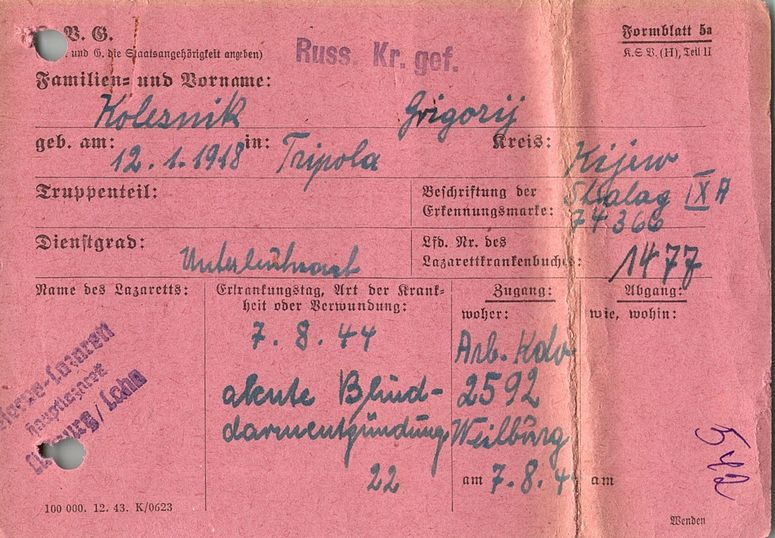 V. G.
und G. die Staatsangehörigkeit angeben)
Russ. Kr. gef.
Formblatt 5a
K.S.V. (H), Teil II
Familien- und Vorname:
Kolesnik Grigorij
geb. am: 12.1.1918 in: Tripola Kreis: Kijew
Truppenteil:
Beschriftung der Erkennungsmarke:
Stalag IX A
74366
Dienstgrad:
Lfd. Nr. des Lazarettkrankenbuches:
1477
Name des Lazaretts:
Erkrankungstag, Art der Krank-
heit oder Verwundung:
Zugang:
woher:
Abgang:
wie, wohin:
7.8.44
akute Blind-
darmentzündung
22
Arb. Kdo
2592
Weilburg
am 7.8.4
am
542
100 000. 12. 43. K/0623
Wenden